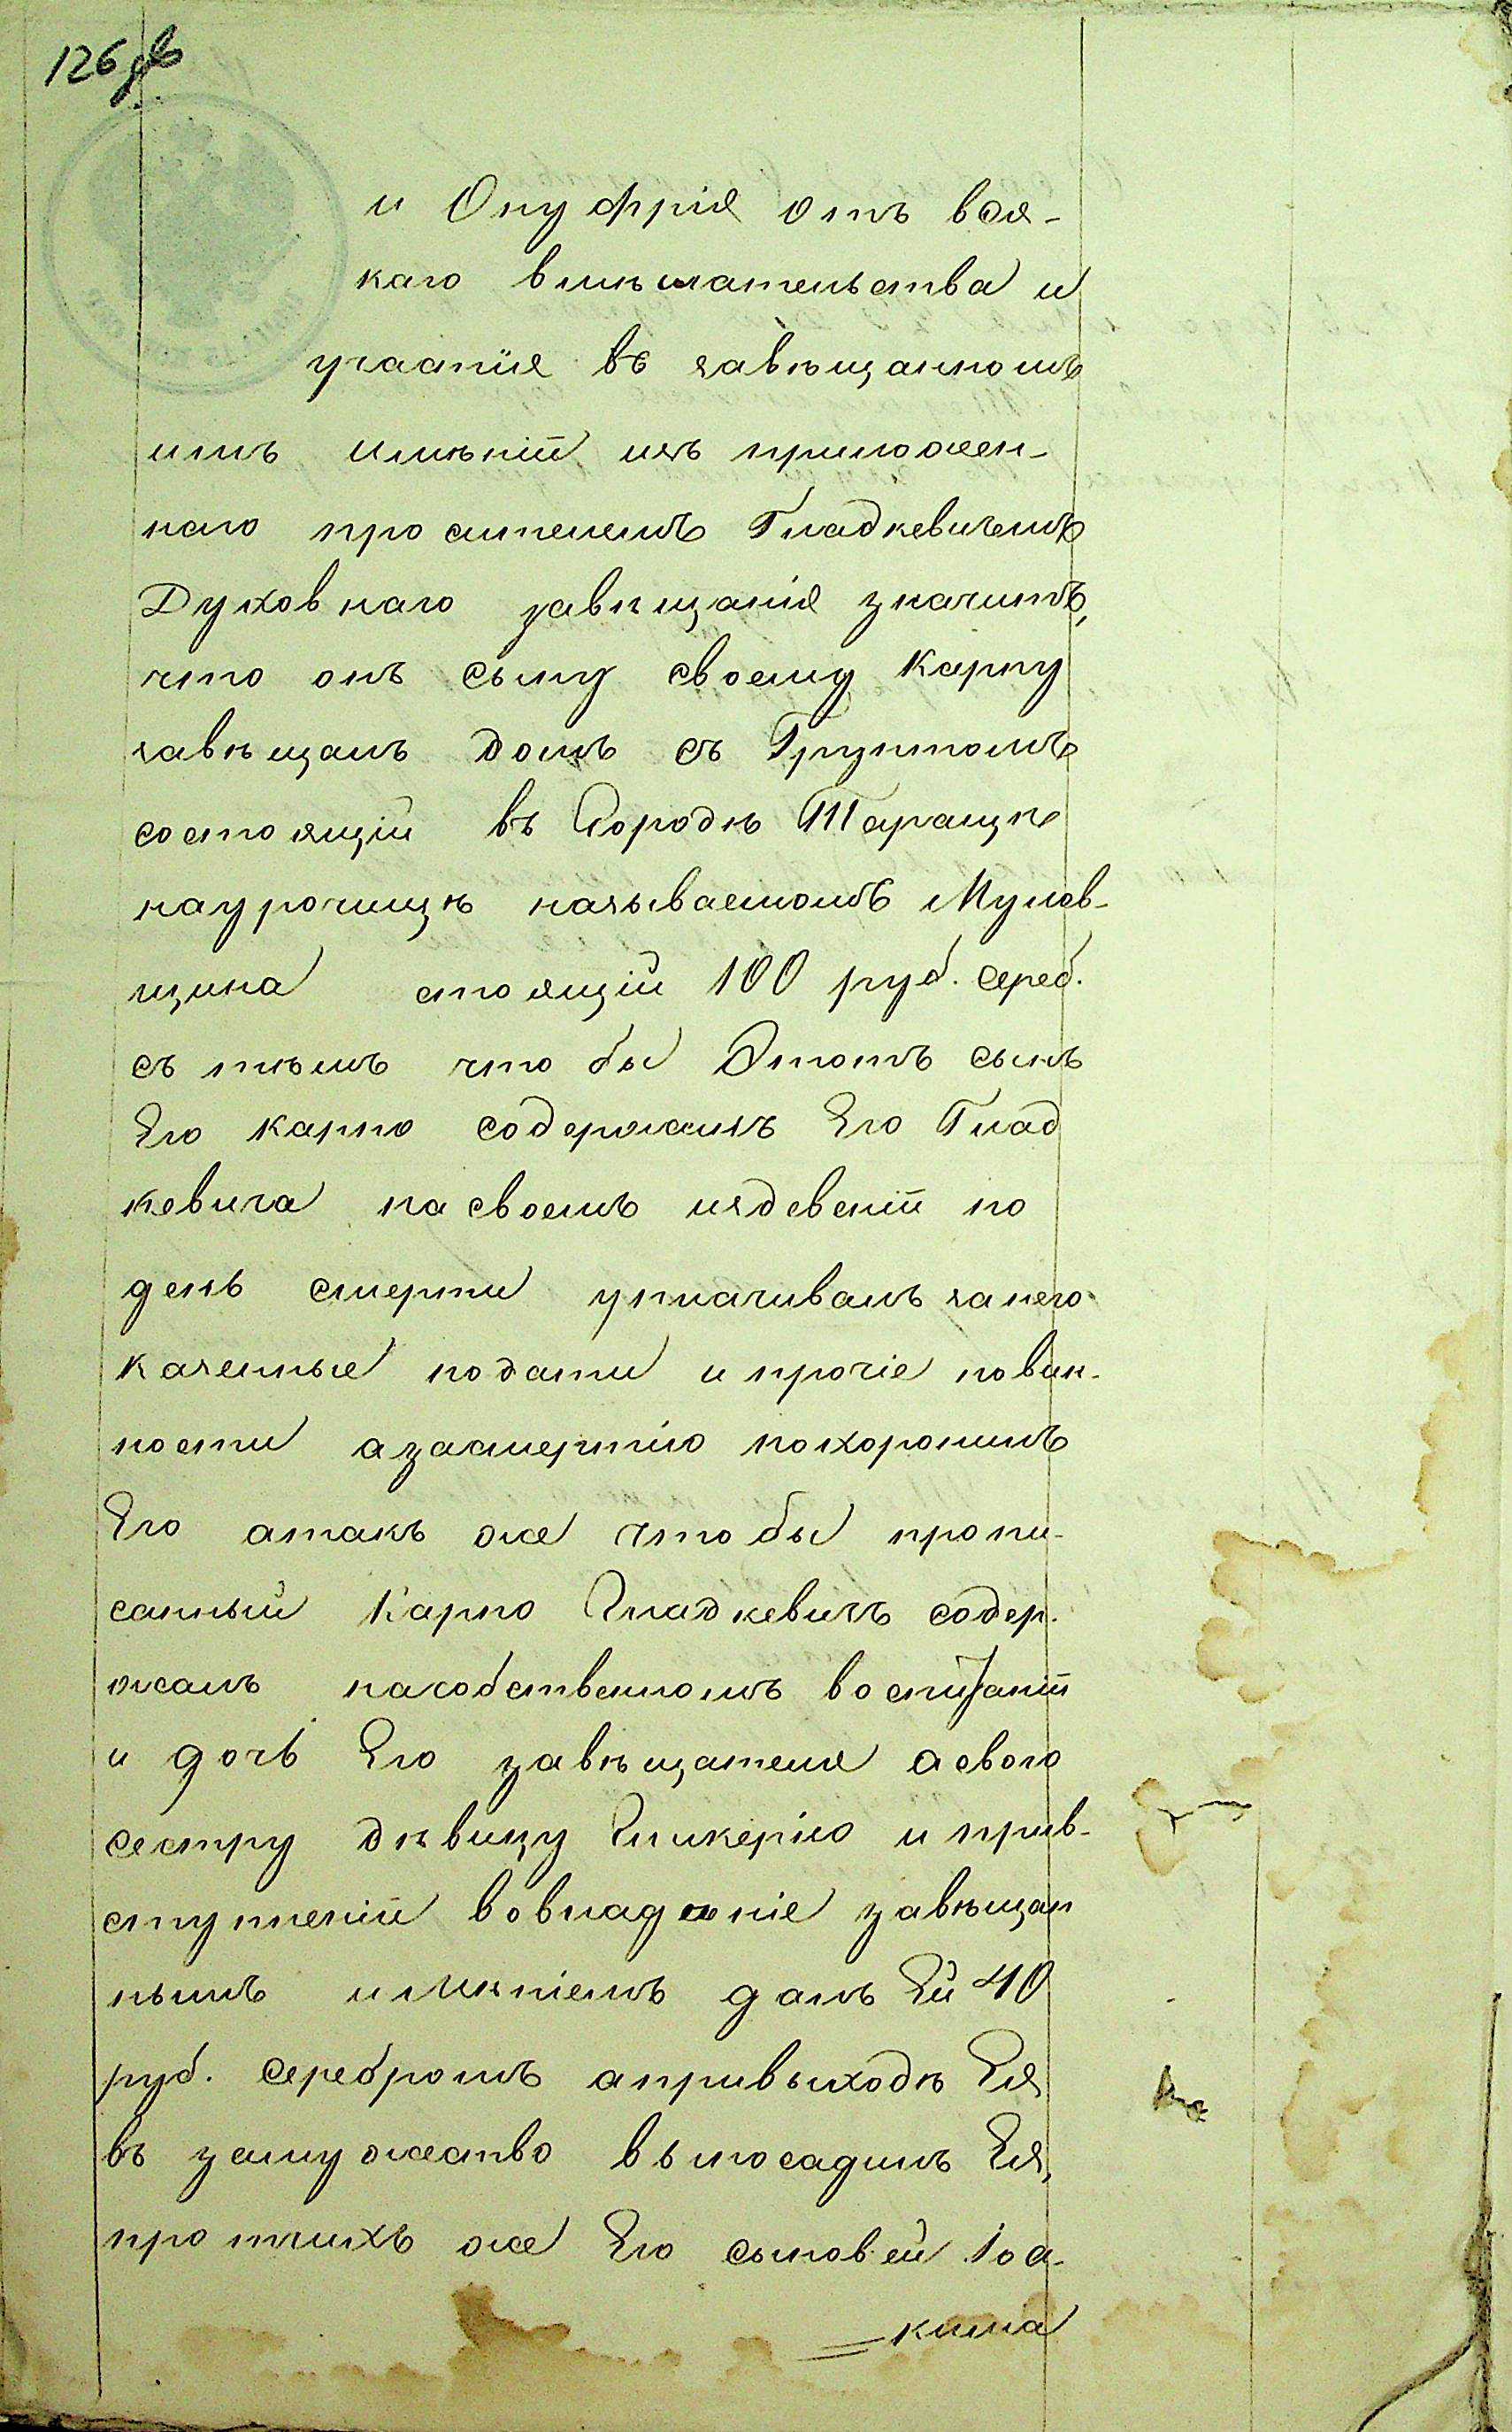 126 об
и Онуфрія отъ вся-
каго вмѣшательства и
участія въ завѣщанномъ
имъ имѣніи изъ приложен-
наго просителемъ Гладкевичемъ
Духовнаго завѣщанія значитъ,
что онъ сыну своему Карпу
завѣщалъ домъ съ Грунтомъ
состоящій въ Городѣ Таращѣ
наурочищѣ называемомъ Мулев-
щина стоящій 100 руб. сереб.
съ тѣмъ что бы Этотъ сынъ
Его Карпо содержалъ Его Глад
кевича на своемъ издевеніи по
день смерти уплачивалъ занего
казенные подати и прочіе повин-
ности азасмертію похоронилъ
Его атакъ же что бы пропи-
санный Карпо Гладкевичъ содер-
жалъ насобственномъ воспитаніи
и дочь Его завѣщателя асвою
сестру дѣвицу Гликерію и прив-
ступленіи вовладѣніе завѣщан
нымъ имѣніемъ далъ Ей 40
руб. серебромъ апривыходѣ Ея
въ замужество выпосадилъ Ея,
протчихъ же Его сыновей Іоа-
кима